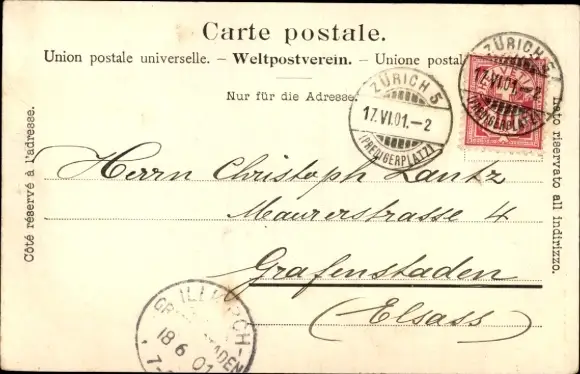 Carte postale.
Union postale universelle. – Weltpostverein. – Unione postal
Nur für die Adresse.
Côté réservé à l'adresse.
lato riservato all indirizzo.
ZÜRICH 5
17.VI.01.–2
(PREDIGERPLATZ)
ZÜRICH 5
17.VI.01.–2
(PREDIGERPLATZ)
Herrn Christoph Lantz
Maurerstrasse 4
Grafenstaden
(Elsass)
ILLKIRCH-
18 6 01